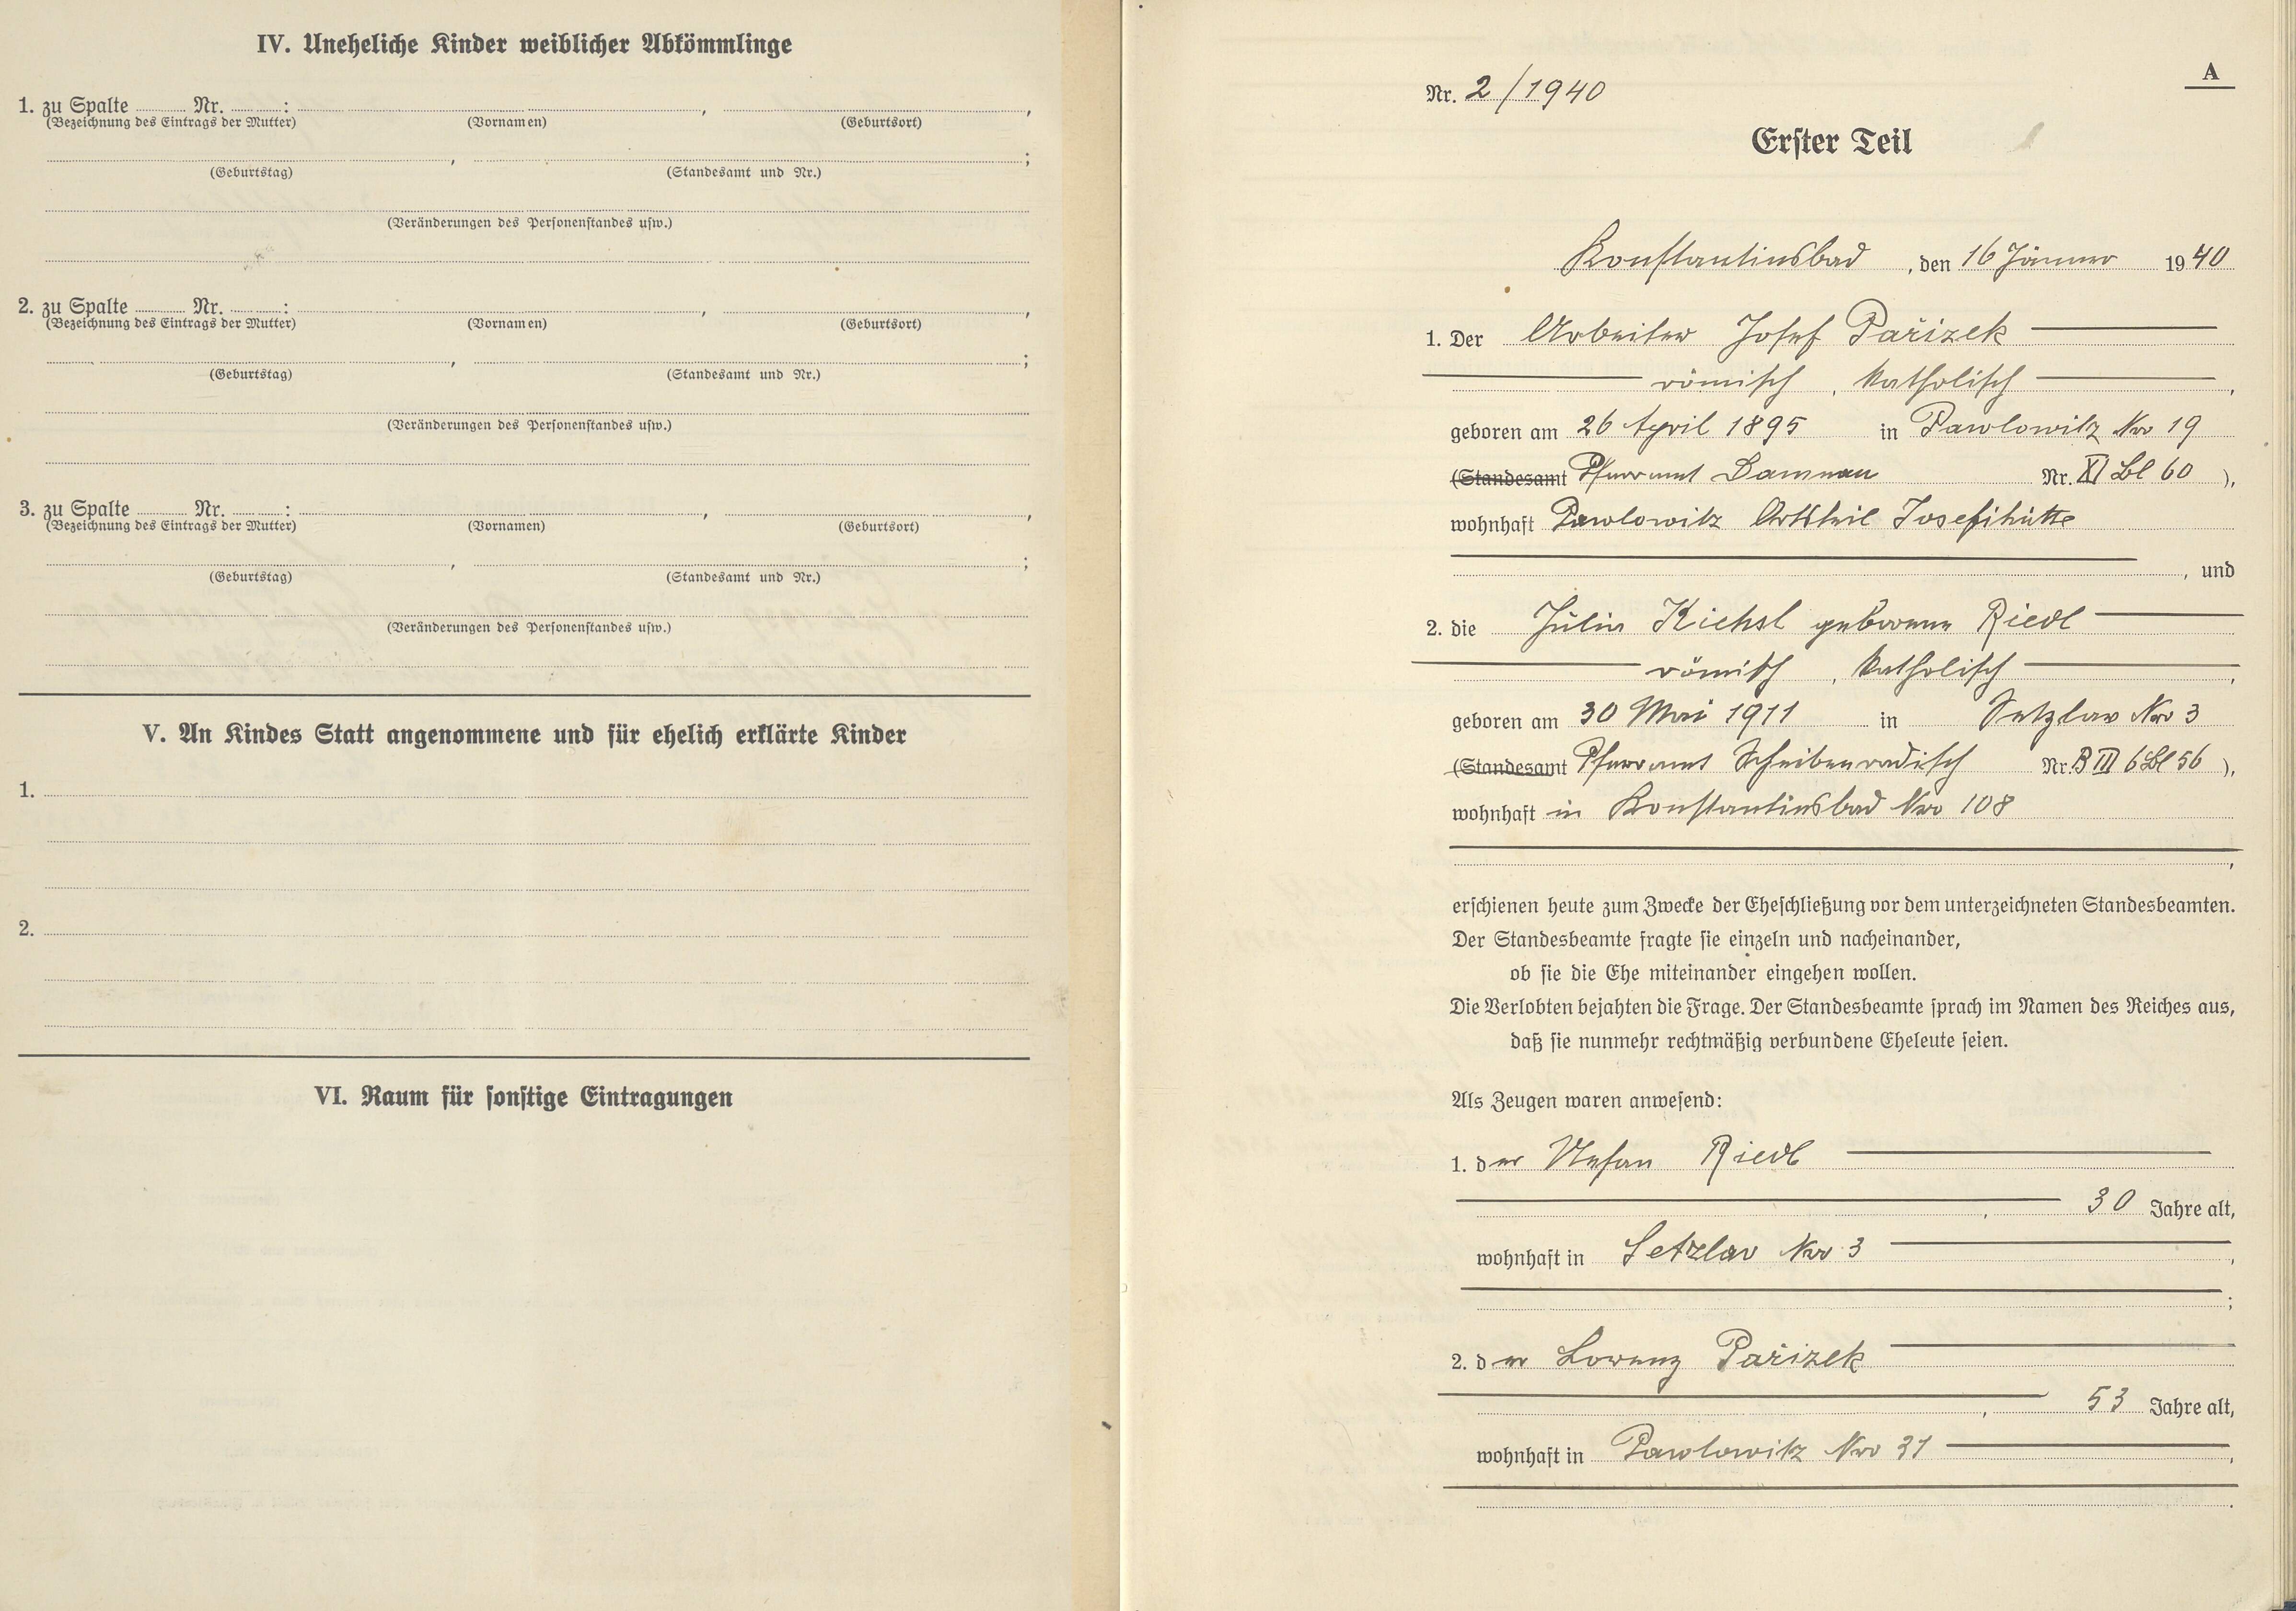 IV. Uneheliche Kinder weiblicher Abkömmlinge
1. zu Spalte ........ Nr. ........ : , ,
(Bezeichnung des Eintrags der Mutter) (Vornamen) (Geburtsort)
, ;
(Geburtstag) (Standesamt und Nr.)
(Veränderungen des Personenstandes usw.)
2. zu Spalte ........ Nr. ........ : , ,
(Bezeichnung des Eintrags der Mutter) (Vornamen) (Geburtsort)
, ;
(Geburtstag) (Standesamt und Nr.)
(Veränderungen des Personenstandes usw.)
3. zu Spalte ........ Nr. ........ : , ,
(Bezeichnung des Eintrags der Mutter) (Vornamen) (Geburtsort)
, ;
(Geburtstag) (Standesamt und Nr.)
(Veränderungen des Personenstandes usw.)
V. An Kindes Statt angenommene und für ehelich erklärte Kinder
1.
2.
VI. Raum für sonstige Eintragungen
A
Nr. 2/1940
Erster Teil
Konstantinsbad, den 16 Jänner 1940
1. Der Arbeiter Josef Pařizek
römisch, katholisch,
geboren am 26 April 1895 in Pawlowitz Nro 19
(Standesamt Pfarramt Damnau Nr. XI Bl 60),
wohnhaft Pawlowitz Ortsteil Josefihütte
, und
2. die Julia Kichsl geborene Riedl
römisch, katholisch,
geboren am 30 Mai 1911 in Setzlav Nro 3
(Standesamt Pfarramt Scheibenradisch Nr. B III 6 Bl 56),
wohnhaft in Konstantinsbad Nro 108
,
erschienen heute zum Zwecke der Eheschließung vor dem unterzeichneten Standesbeamten.
Der Standesbeamte fragte sie einzeln und nacheinander,
ob sie die Ehe miteinander eingehen wollen.
Die Verlobten bejahten die Frage. Der Standesbeamte sprach im Namen des Reiches aus,
daß sie nunmehr rechtmäßig verbundene Eheleute seien.
Als Zeugen waren anwesend:
1. der Stefan Riedl
, 30 Jahre alt,
wohnhaft in Setzlav Nro 3,
;
2. der Lorenz Pařizek
, 53 Jahre alt,
wohnhaft in Pawlowitz Nro 31,
.